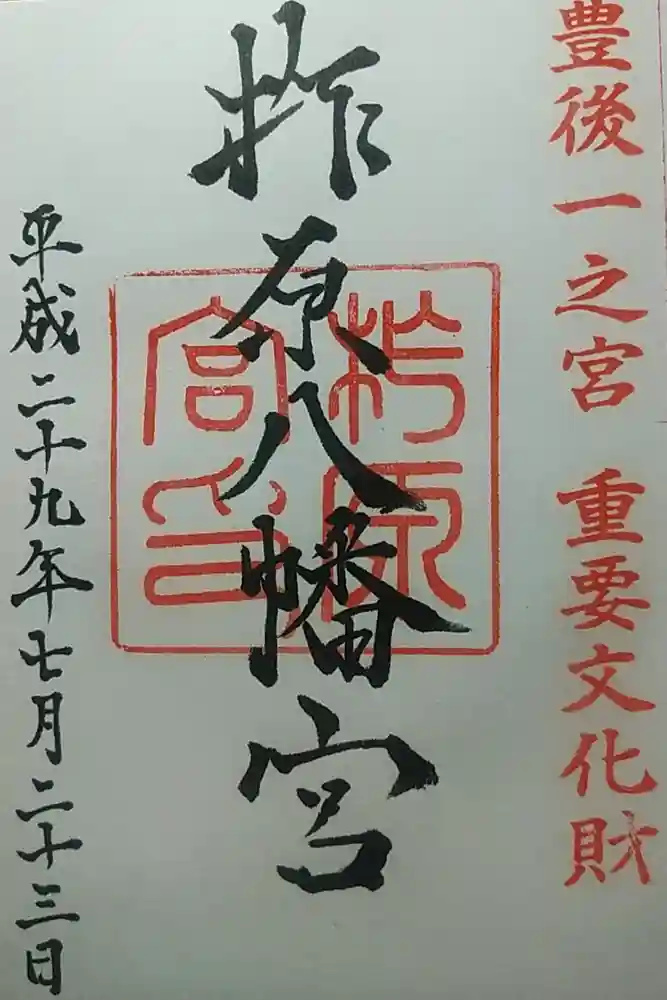 豊後一之宮 重要文化財
柞原八幡宮
柞原
宮印
平成二十九年七月二十三日